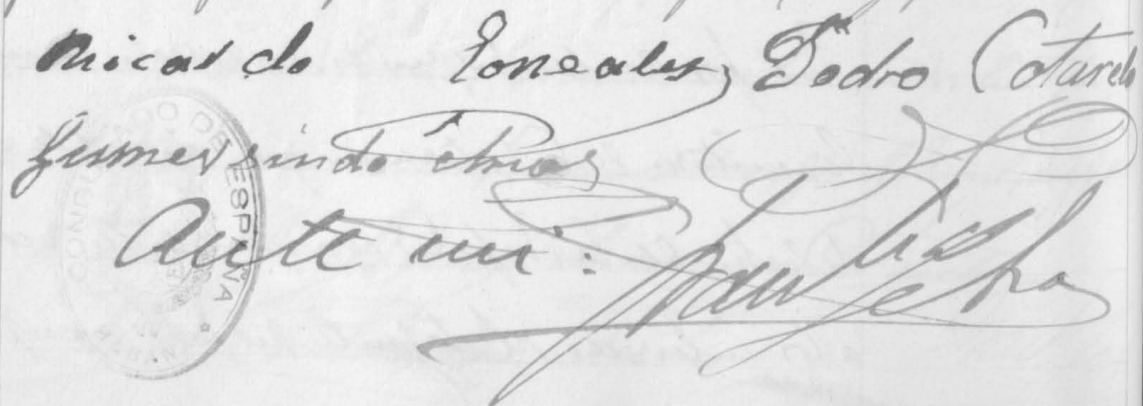 Ricardo Gonzalez Pedro Cotarelo
Gumersindo Arias
Ante mi:
CONSULADO DE ESPAÑA